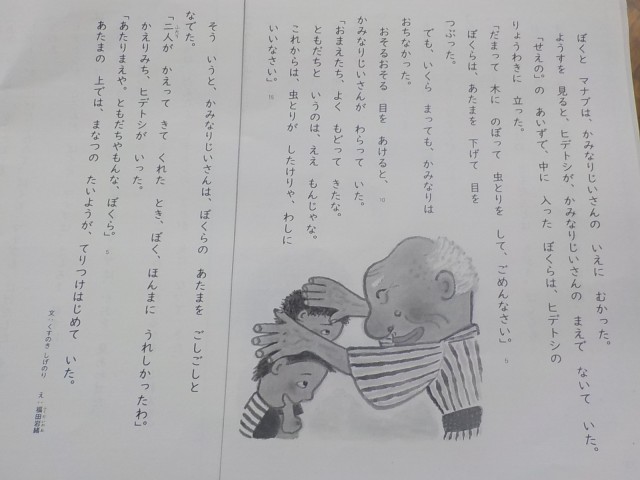 ぼくと　マナブは、かみなりじいさんの　いえに　むかった。
ようすを　見ると、ヒデトシが、かみなりじいさんの　まえで　ないて　いた。
「せえの」の　あいずで、中に　入った　ぼくらは、ヒデトシの
りょうわきに　立った。
「だまって　木に　のぼって　虫とりを　して、ごめんなさい」。
ぼくらは、あたまを　下げて　目を
つぶった。
でも、いくら　まっても、かみなりは
おちなかった。
おそるおそる　目を　あけると、
かみなりじいさんが　わらって　いた。
「おまえたち、よく　もどって　きたな。
ともだちと　いうのは、ええ　もんじゃな。
これからは、虫とりが　したけりゃ、わしに
いいなさい」。
そう　いうと、かみなりじいさんは、ぼくらの　あたまを　ごしごしと
なでた。
「二人が　かえって　きて　くれた　とき、ぼく、ほんまに　うれしかったわ」。
かえりみち、ヒデトシが　いった。
「あたりまえや。ともだちやもんな、ぼくら」。
あたまの　上では、まなつの　たいようが、てりつけはじめて　いた。
文・くすのき しげのり　え・福田岩緒